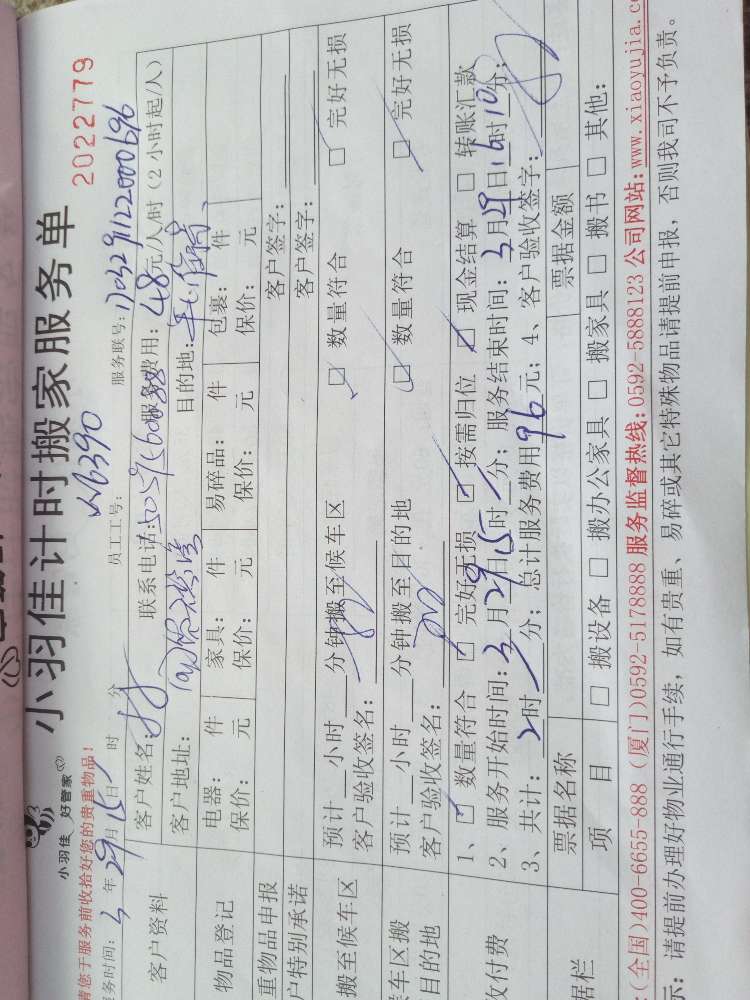 小羽佳计时搬家服务单
小羽佳 好管家
2022779
请您于服务前收拾好您的贵重物品!
服务时间: 3 年 29 月 15 日 时 分 员工工号: 服务联号: 1703291122000696
客户资料
客户姓名: 联系电话: 服务费用: 48元/人/时 (2 小时起/人)
客户地址: 目的地:
物品登记
电器: 件 家具: 件 易碎品: 件 包裹: 件
保价: 元 保价: 元 保价: 元 保价: 元
重物品申报 客户签字:
户特别承诺 客户签字:
搬至候车区
预计 小时 分钟搬至候车区 □ 数量符合 □ 完好无损
客户验收签名:
车区搬
目的地
预计 小时 分钟搬至目的地 □ 数量符合 □ 完好无损
客户验收签名:
收付费
1、□ 数量符合 □ 完好无损 □ 按需归位 □ 现金结算 □ 转账汇款
2、服务开始时间: 3 月 29 日 15 时 分; 服务结束时间: 3 月 29 日 16 时 10 分;
3、共计: 2 时 分; 总计服务费用 96 元; 4、客户验收签字:
据栏
票据名称 票据金额
项 目 □ 搬设备 □ 搬办公家具 □ 搬家具 □ 搬书 □ 其他:
(全国)400-6655-888 (厦门)0592-5178888 服务监督热线:0592-5888123 公司网站:www.xiaoyujia.c
示: 请提前办理好物业通行手续, 如有贵重、易碎或其它特殊物品请提前申报, 否则我司不予负责。